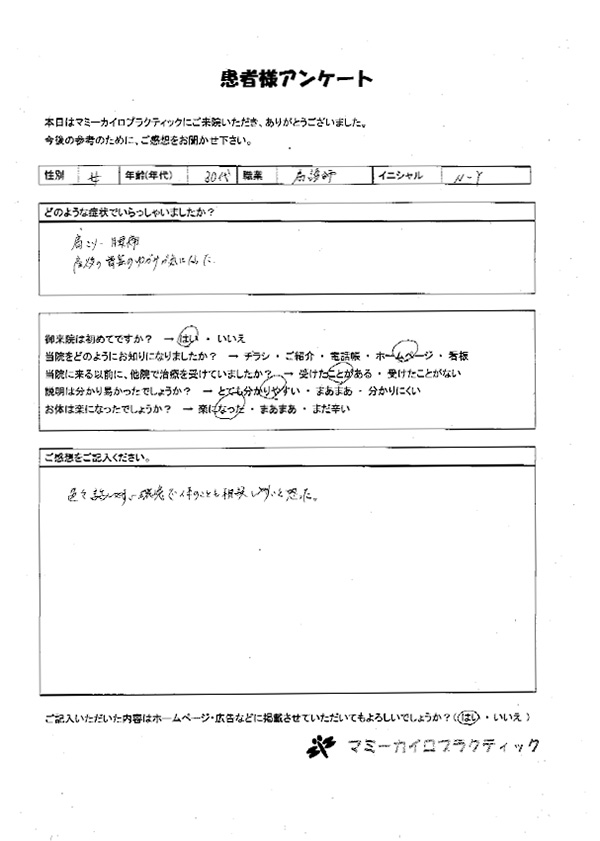 患者様アンケート
本日はマミーカイロプラクティックにご来院いただき、ありがとうございました。
今後の参考のために、ご感想をお聞かせ下さい。
性別 女 年齢(年代) 30代 職業 看護師 イニシャル N-Y
どのような症状でいらっしゃいましたか？
肩こり・腰痛
産後の骨盤のゆがみが気になった
御来院は初めてですか？ → はい ・ いいえ
当院をどのようにお知りになりましたか？ → チラシ ・ ご紹介 ・ 電話帳 ・ ホームページ ・ 看板
当院に来る以前に、他院で治療を受けていましたか？ → 受けたことがある ・ 受けたことがない
説明は分かり易かったでしょうか？ → とても分かりやすい ・ まあまあ ・ 分かりにくい
お体は楽になったでしょうか？ → 楽になった ・ まあまあ ・ まだ辛い
ご感想をご記入ください。
色々話しやすい環境で体のことも相談しやすいと思った。
ご記入いただいた内容はホームページ・広告などに掲載させていただいてもよろしいでしょうか？（はい ・ いいえ ）
マミーカイロプラクティック